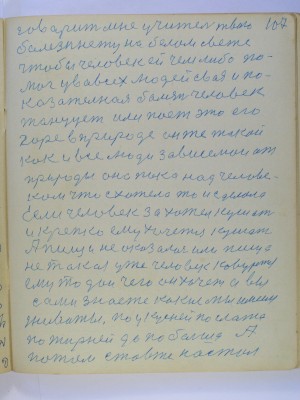 говарит мне учител твою 107
балезн нету на белом свете
чтобы человек ей чем либо по-
мог у всех людей свая и по-
казателная балезн человек
танцует или поет это его
горе в природе он же такой
как и все люди зависемой от
природы она пока над челове-
ком что схотела то и сделала
Если человек захотел кушат
и крепко ему хочется кушат
А пищи не оказалос или пища
не такая уже человек
ему то дай чего он хочет и вы
сами знаете какие мы
по
пожирней да по болше А
потом ставже настал